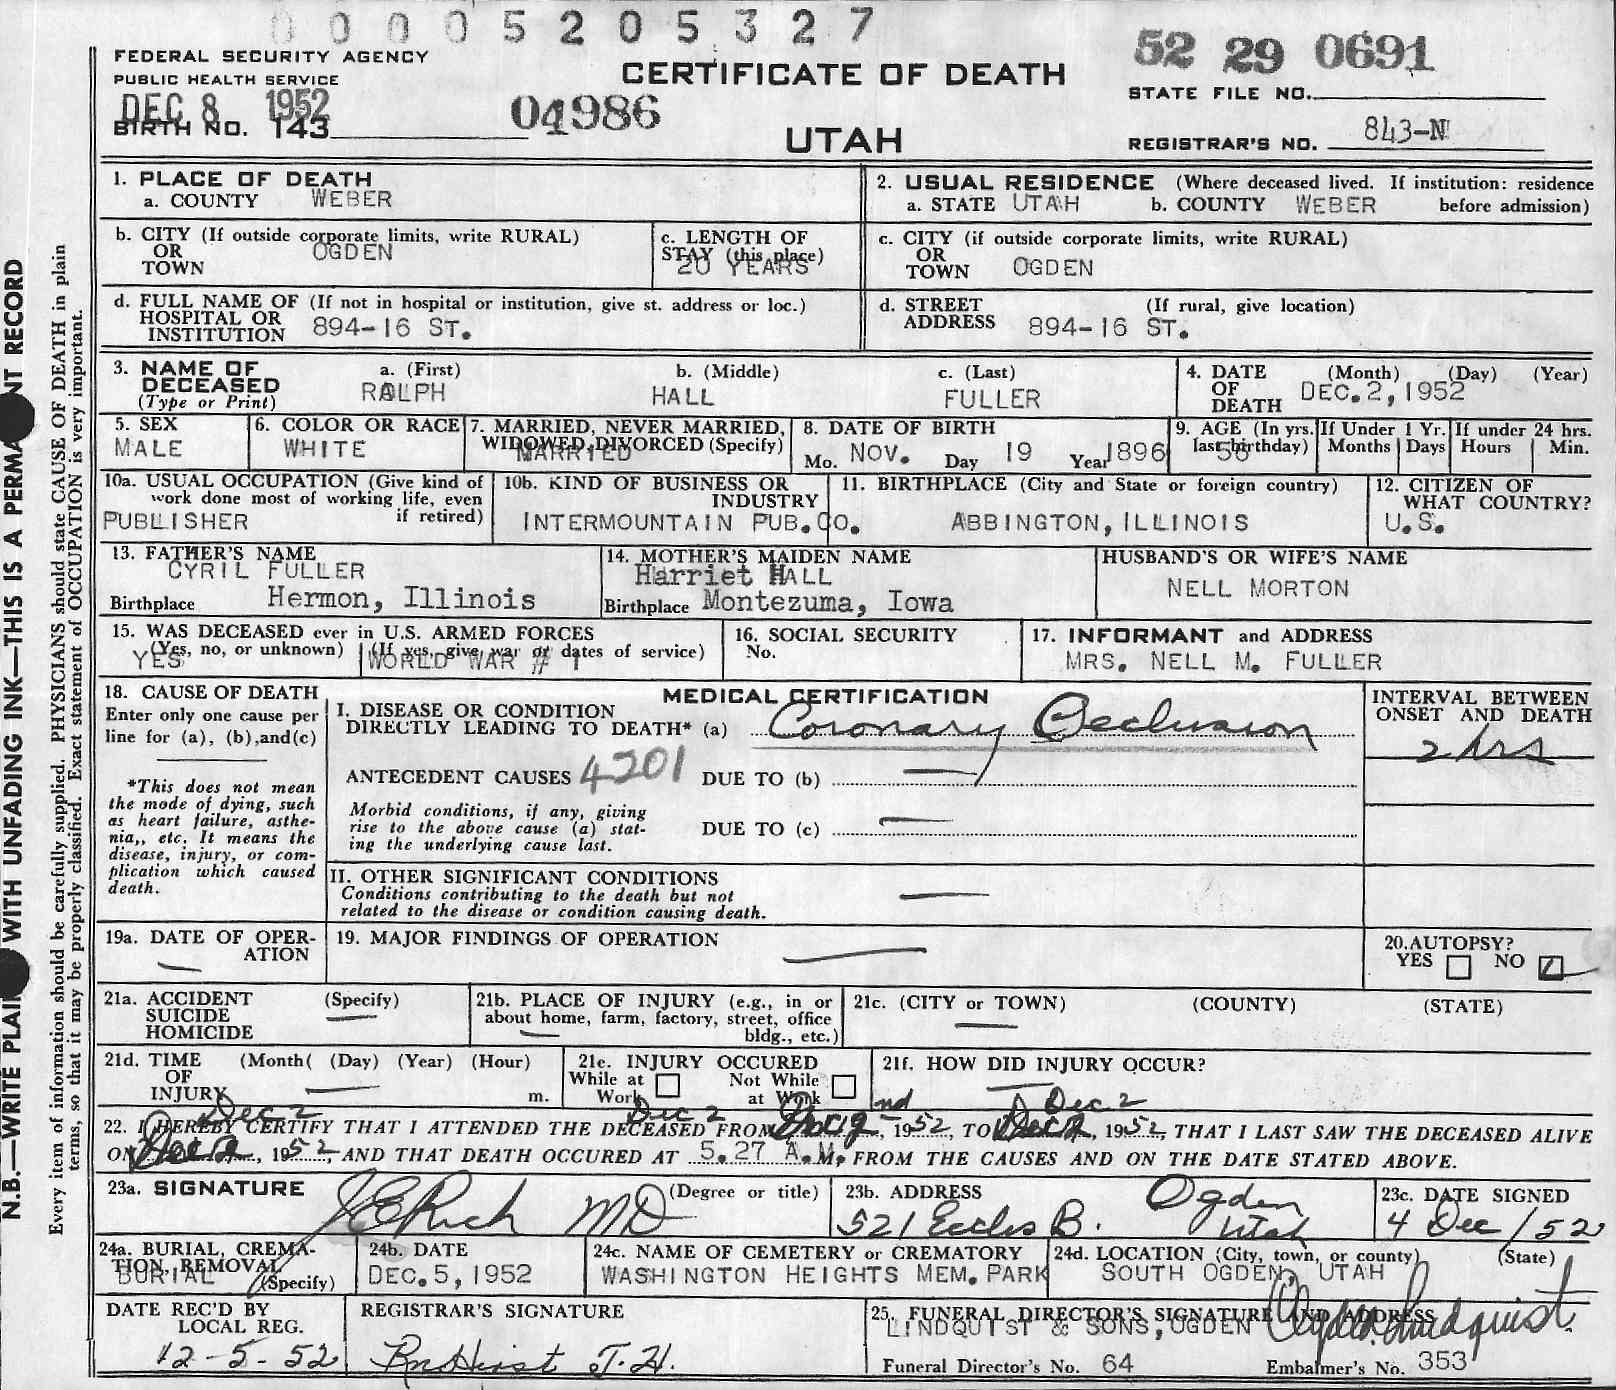 00005205327
FEDERAL SECURITY AGENCY
PUBLIC HEALTH SERVICE
DEC 8 1952
BIRTH NO. 143
04986
CERTIFICATE OF DEATH
UTAH
52 29 0691
STATE FILE NO.
REGISTRAR'S NO. 843-N
1. PLACE OF DEATH
a. COUNTY WEBER
2. USUAL RESIDENCE (Where deceased lived. If institution: residence
a. STATE UTAH b. COUNTY WEBER before admission)
b. CITY (If outside corporate limits, write RURAL)
OR
TOWN
OGDEN
c. LENGTH OF
STAY (this place)
20 YEARS
c. CITY (if outside corporate limits, write RURAL)
OR
TOWN OGDEN
d. FULL NAME OF (If not in hospital or institution, give st. address or loc.)
HOSPITAL OR
INSTITUTION 894-16 ST.
d. STREET (If rural, give location)
ADDRESS 894-16 ST.
3. NAME OF
DECEASED
(Type or Print)
a. (First)
RALPH
b. (Middle)
HALL
c. (Last)
FULLER
4. DATE (Month) (Day) (Year)
OF
DEATH
DEC.2,1952
5. SEX
MALE
6. COLOR OR RACE
WHITE
7. MARRIED, NEVER MARRIED,
WIDOWED, DIVORCED (Specify)
MARRIED
8. DATE OF BIRTH
Mo. NOV. Day 19 Year 1896
9. AGE (In yrs.
last birthday)
56
If Under 1 Yr.
Months Days
If under 24 hrs.
Hours Min.
10a. USUAL OCCUPATION (Give kind of
work done most of working life, even
if retired)
PUBLISHER
10b. KIND OF BUSINESS OR
INDUSTRY
INTERMOUNTAIN PUB.CO.
11. BIRTHPLACE (City and State or foreign country)
ABBINGTON, ILLINOIS
12. CITIZEN OF
WHAT COUNTRY?
U.S.
13. FATHER'S NAME
CYRIL FULLER
Birthplace Hermon, Illinois
14. MOTHER'S MAIDEN NAME
Harriet HALL
Birthplace Montezuma, Iowa
HUSBAND'S OR WIFE'S NAME
NELL MORTON
15. WAS DECEASED ever in U.S. ARMED FORCES
(Yes, no, or unknown) (If yes, give war or dates of service)
YES WORLD WAR # 1
16. SOCIAL SECURITY
No.
17. INFORMANT and ADDRESS
MRS. NELL M. FULLER
18. CAUSE OF DEATH
Enter only one cause per
line for (a), (b),and(c)
*This does not mean
the mode of dying, such
as heart failure, asthe-
nia,, etc. It means the
disease, injury, or com-
plication which caused
death.
MEDICAL CERTIFICATION
I. DISEASE OR CONDITION
DIRECTLY LEADING TO DEATH* (a) Coronary Occlusion
INTERVAL BETWEEN
ONSET AND DEATH
2 hrs
ANTECEDENT CAUSES 4201 DUE TO (b) —
Morbid conditions, if any, giving
rise to the above cause (a) stat-
ing the underlying cause last.
DUE TO (c) —
II. OTHER SIGNIFICANT CONDITIONS
Conditions contributing to the death but not
related to the disease or condition causing death.
—
19a. DATE OF OPER-
ATION
—
19. MAJOR FINDINGS OF OPERATION
—
20.AUTOPSY?
YES NO
21a. ACCIDENT (Specify)
SUICIDE —
HOMICIDE
21b. PLACE OF INJURY (e.g., in or
about home, farm, factory, street, office
bldg., etc.)
—
21c. (CITY or TOWN) (COUNTY) (STATE)
—
21d. TIME (Month( (Day) (Year) (Hour)
OF
INJURY — m.
21e. INJURY OCCURED
While at Not While
Work at Work
21f. HOW DID INJURY OCCUR?
—
Dec 2 Dec 2 nd Dec 2
22. I HEREBY CERTIFY THAT I ATTENDED THE DECEASED FROM, 1952, TO, 1952, THAT I LAST SAW THE DECEASED ALIVE
ON Dec 2, 1952, AND THAT DEATH OCCURED AT 5.27 A.M. FROM THE CAUSES AND ON THE DATE STATED ABOVE.
23a. SIGNATURE (Degree or title)
J E Rich MD
23b. ADDRESS
521 Eccles B. Ogden
Utah
23c. DATE SIGNED
4 Dec/52
24a. BURIAL, CREMA-
TION, REMOVAL
(Specify)
BURIAL
24b. DATE
DEC.5,1952
24c. NAME OF CEMETERY or CREMATORY
WASHINGTON HEIGHTS MEM. PARK
24d. LOCATION (City, town, or county) (State)
SOUTH OGDEN, UTAH
DATE REC'D BY
LOCAL REG.
12-5-52
REGISTRAR'S SIGNATURE
25. FUNERAL DIRECTOR'S SIGNATURE AND ADDRESS
LINDQUIST & SONS, OGDEN Lindquist
Funeral Director's No. 64 Embalmer's No. 353
N.B.—WRITE WITH UNFADING INK—THIS IS A RECORD
Every item of information should be carefully supplied. PHYSICIANS should state CAUSE OF DEATH in plain
terms, so that it may be properly classified. Exact statement of OCCUPATION is very important.